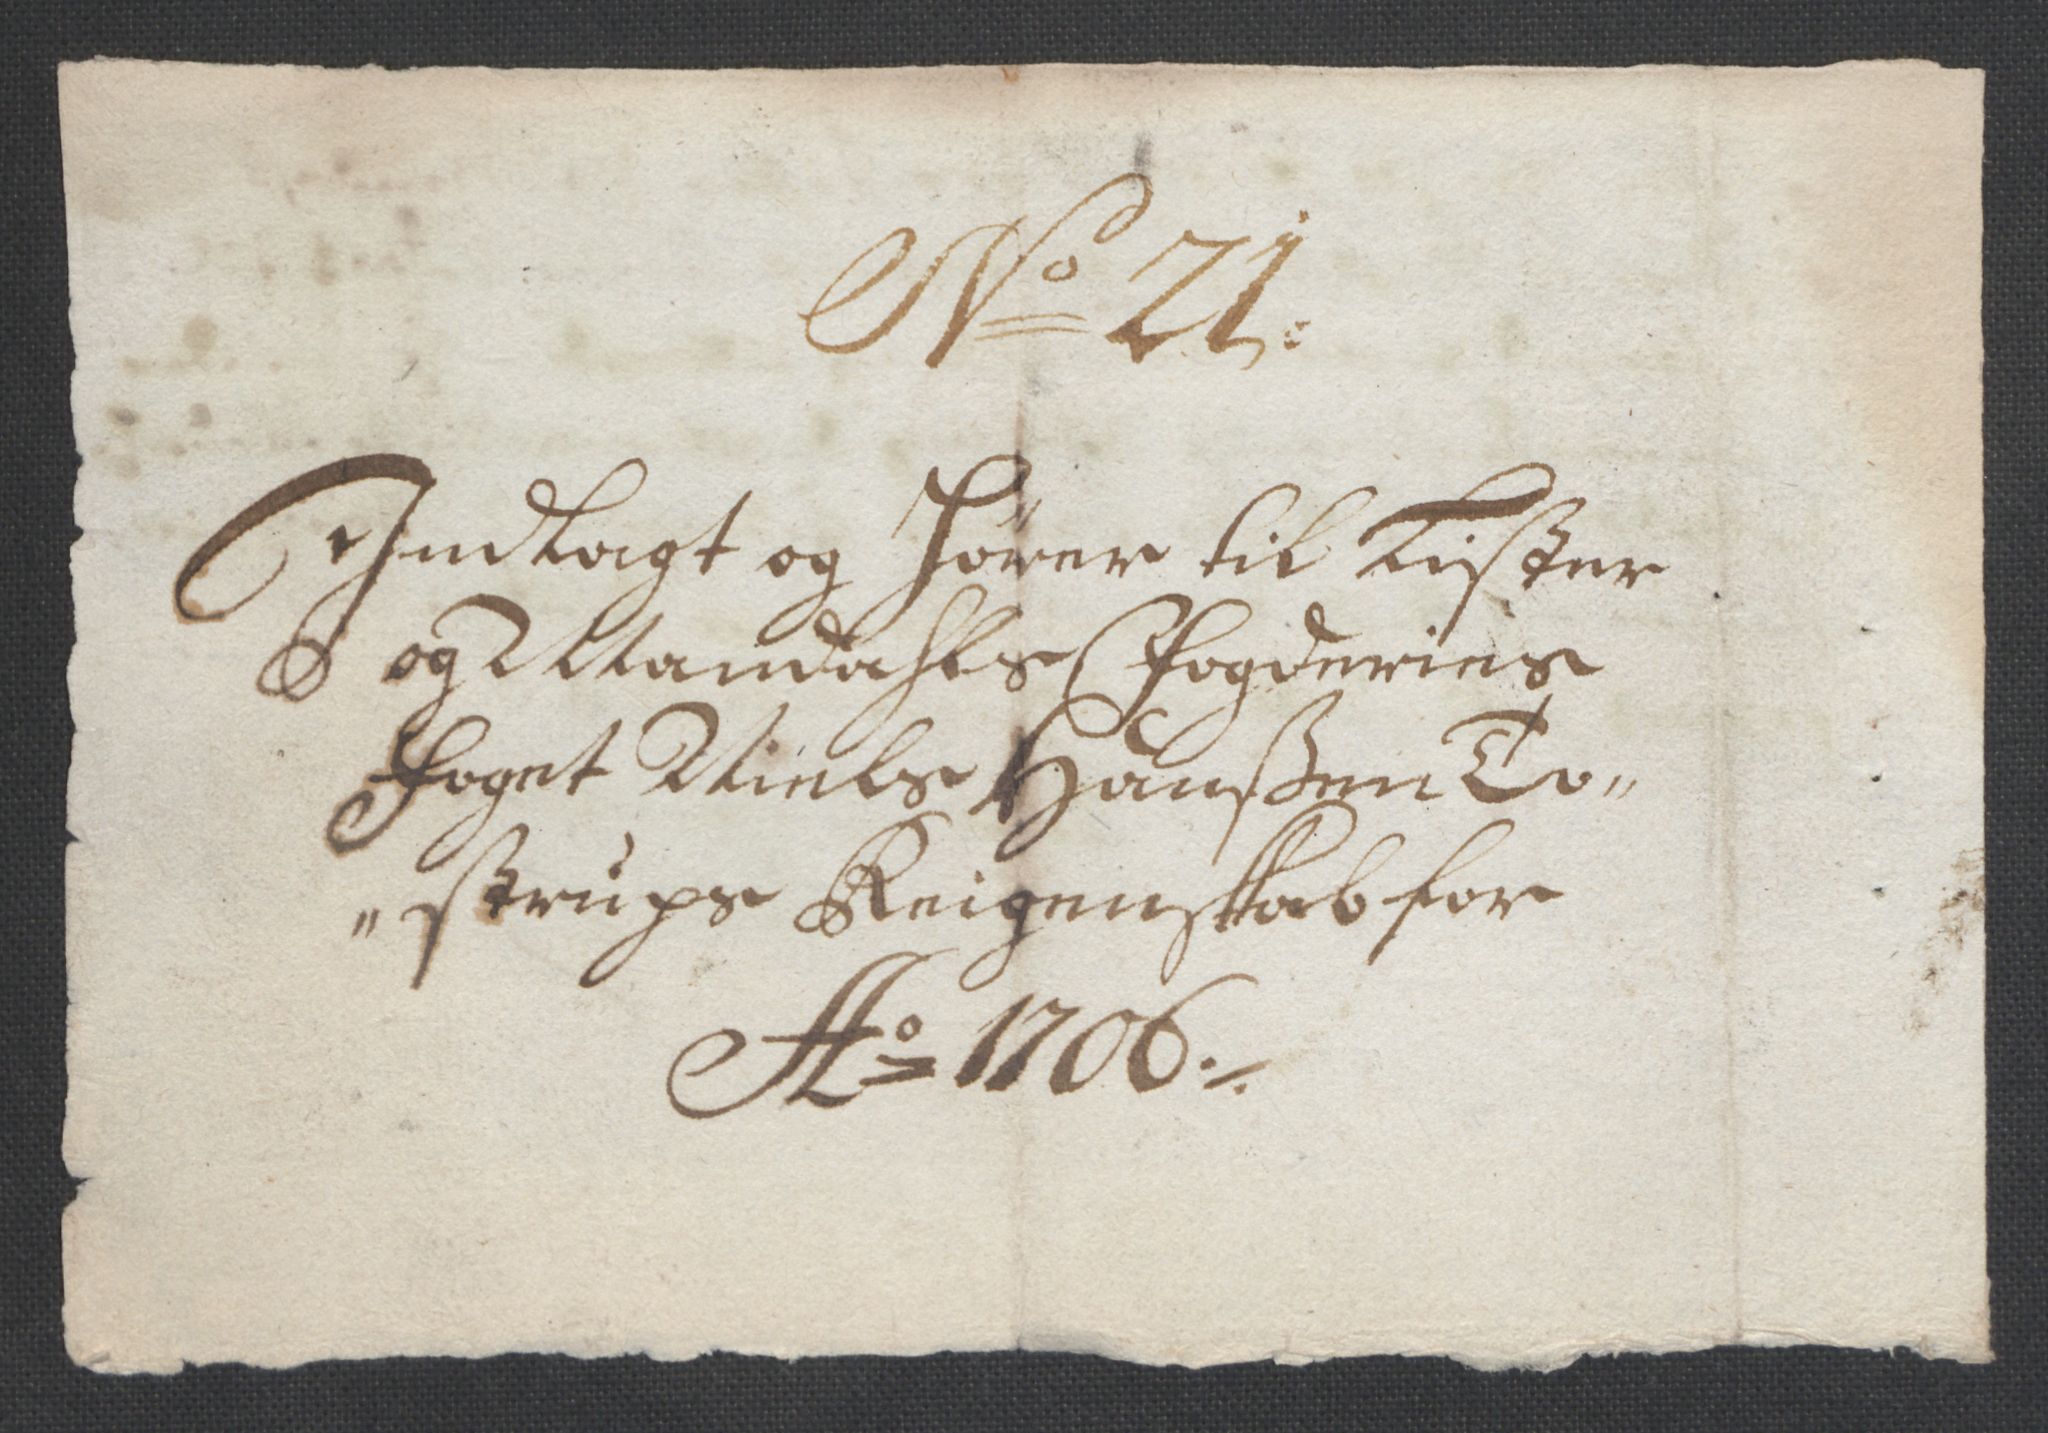 No 21.
Indlagt og hörer til Lister
og Mandahls Fogderies
Foget Niels Hanßen To-
-strups Reigenskab for
Ao 1706.